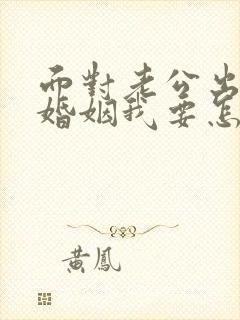 面對老公出
婚姻我要怎
黃鳳